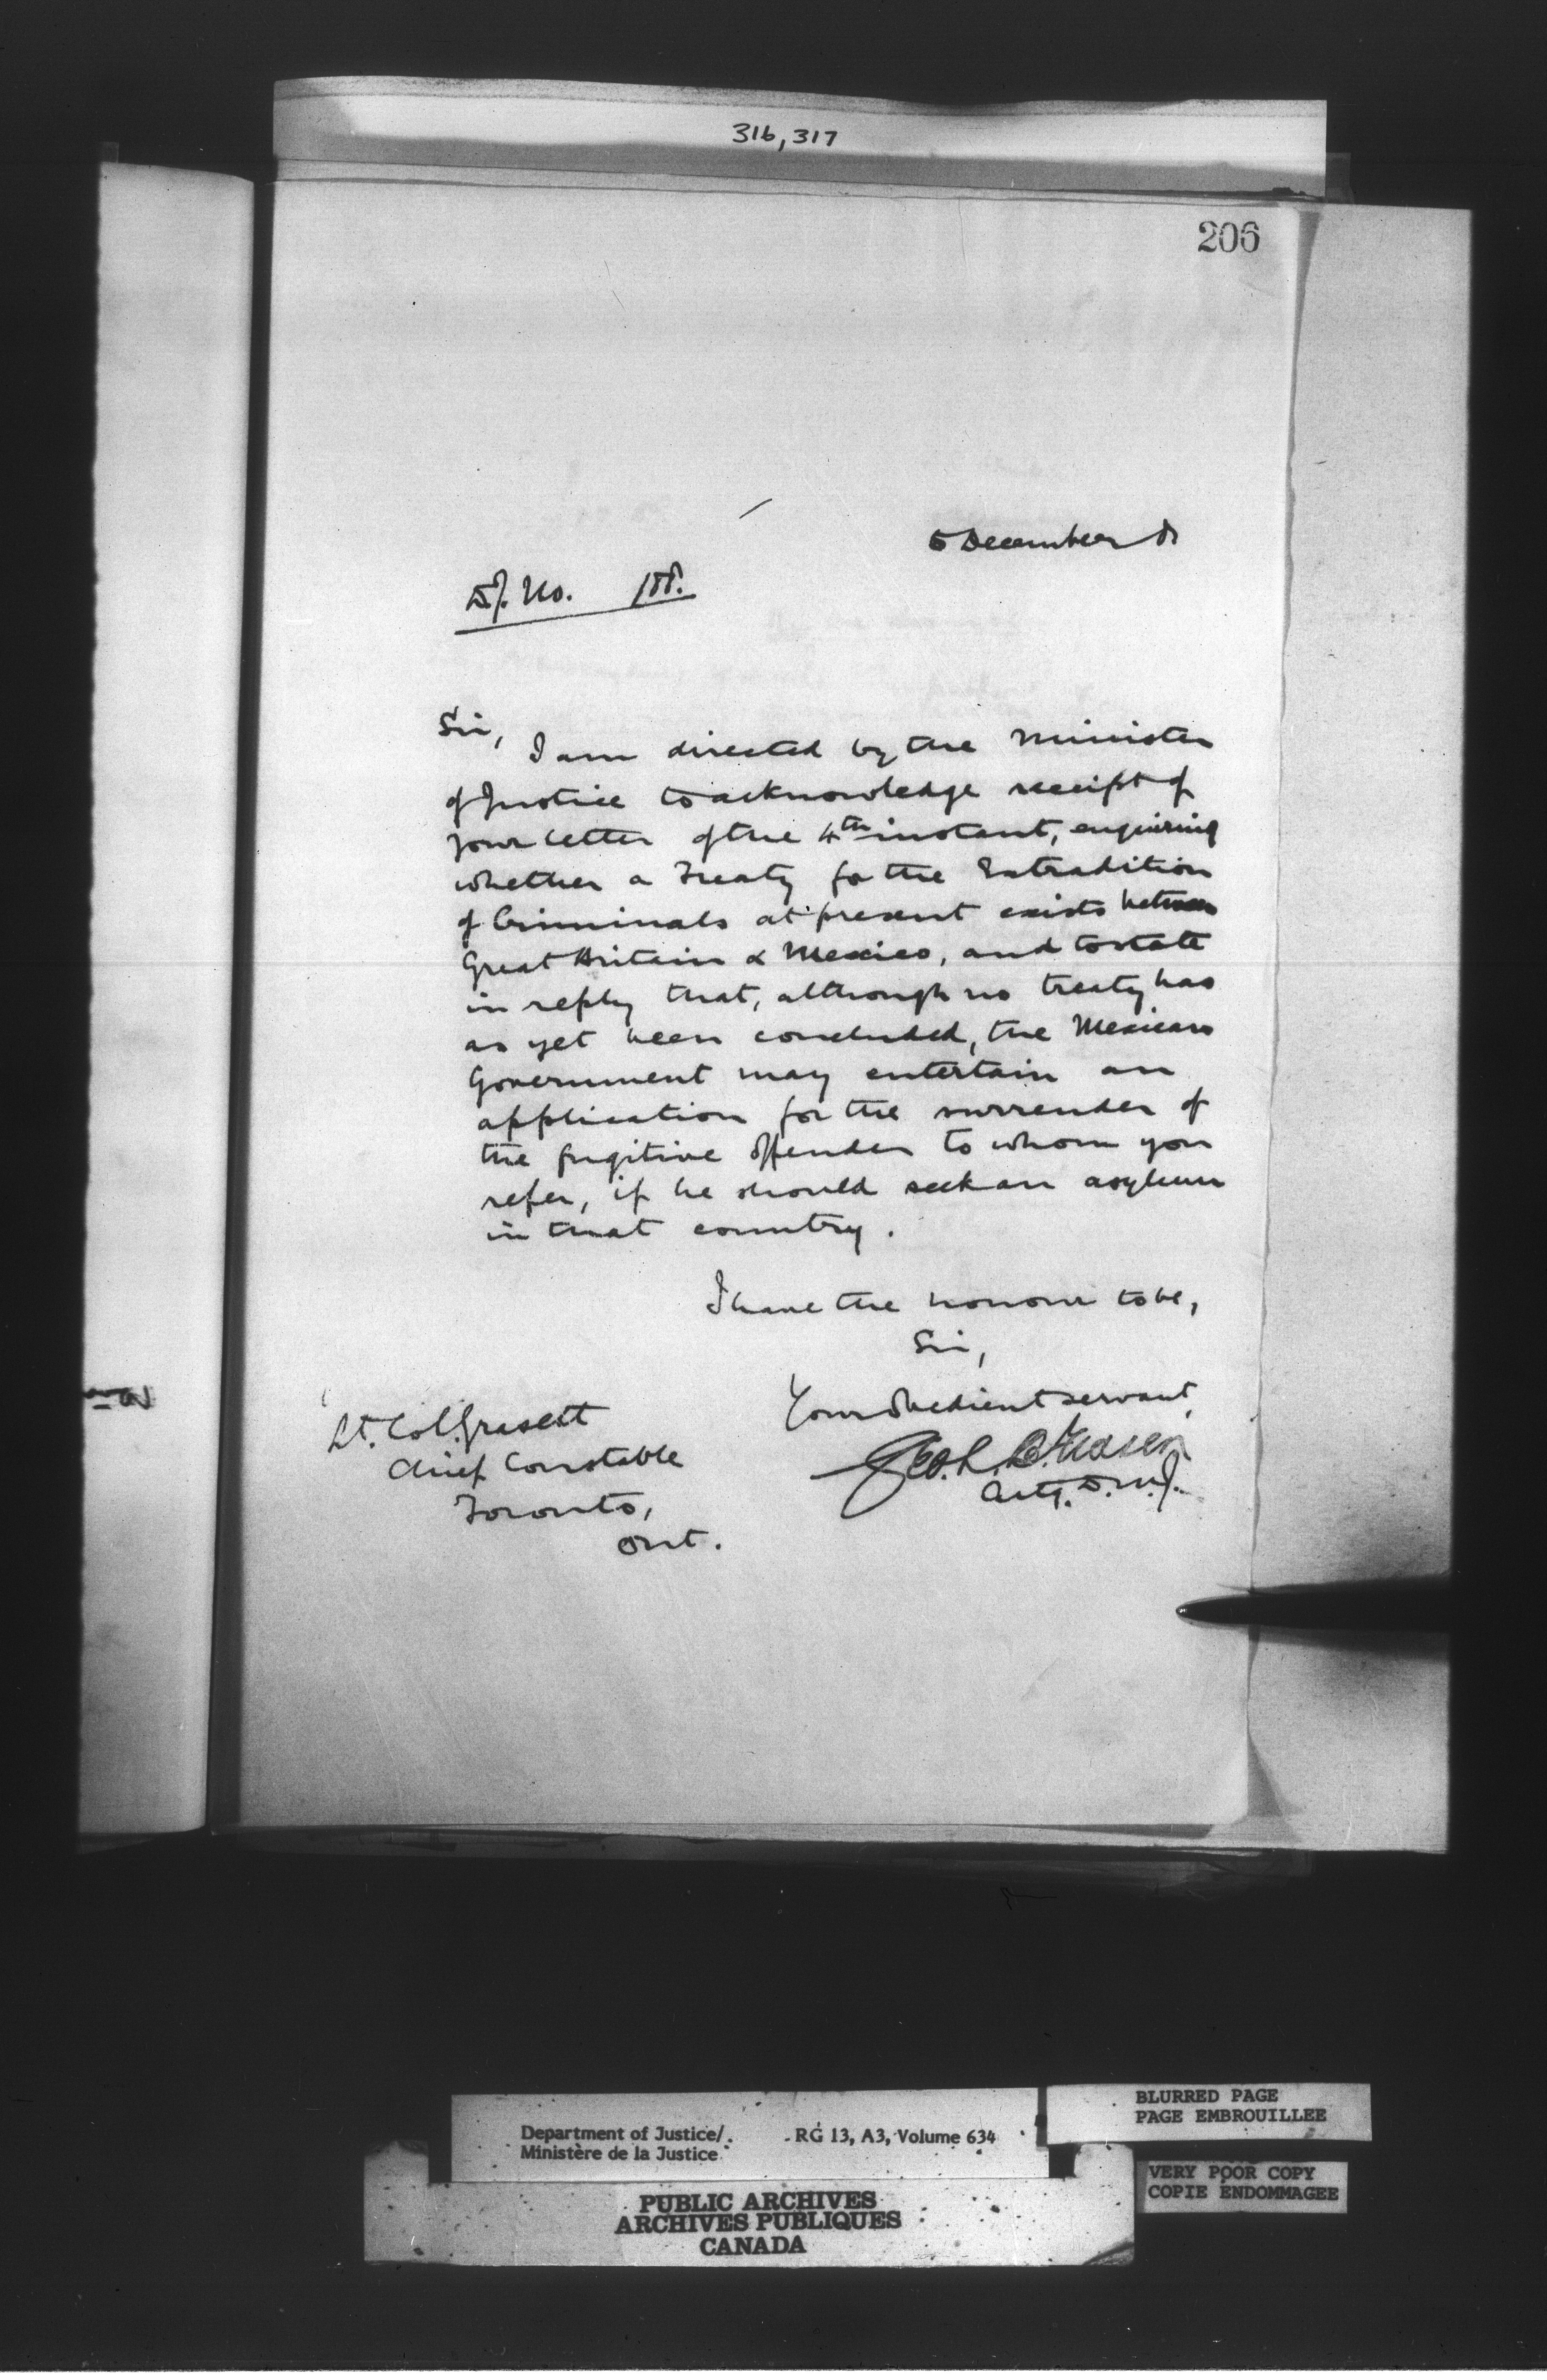 316, 317
206
5 December 8
D.J. No. 188.
Sir,
I am directed by the Minister
of Justice to acknowledge receipt of
your letter of the 4th instant, enquiring
whether a Treaty for the Extradition
of Criminals at present exists between
Great Britain & Mexico, and to state
in reply that, although no treaty has
as yet been concluded, the Mexican
Government may entertain an
application for the surrender of
the fugitive offender to whom you
refer, if he should seek an asylum
in that country.
I have the honour to be,
Sir,
Your obedient servant,
Geo. L. B. Fraser
Actg. D.M.J.
Lt. Col. Grasett
Chief Constable
Toronto,
Ont.
Department of Justice/
Ministère de la Justice
RG 13, A3, Volume 634
BLURRED PAGE
PAGE EMBROUILLEE
VERY POOR COPY
COPIE ENDOMMAGEE
PUBLIC ARCHIVES
ARCHIVES PUBLIQUES
CANADA